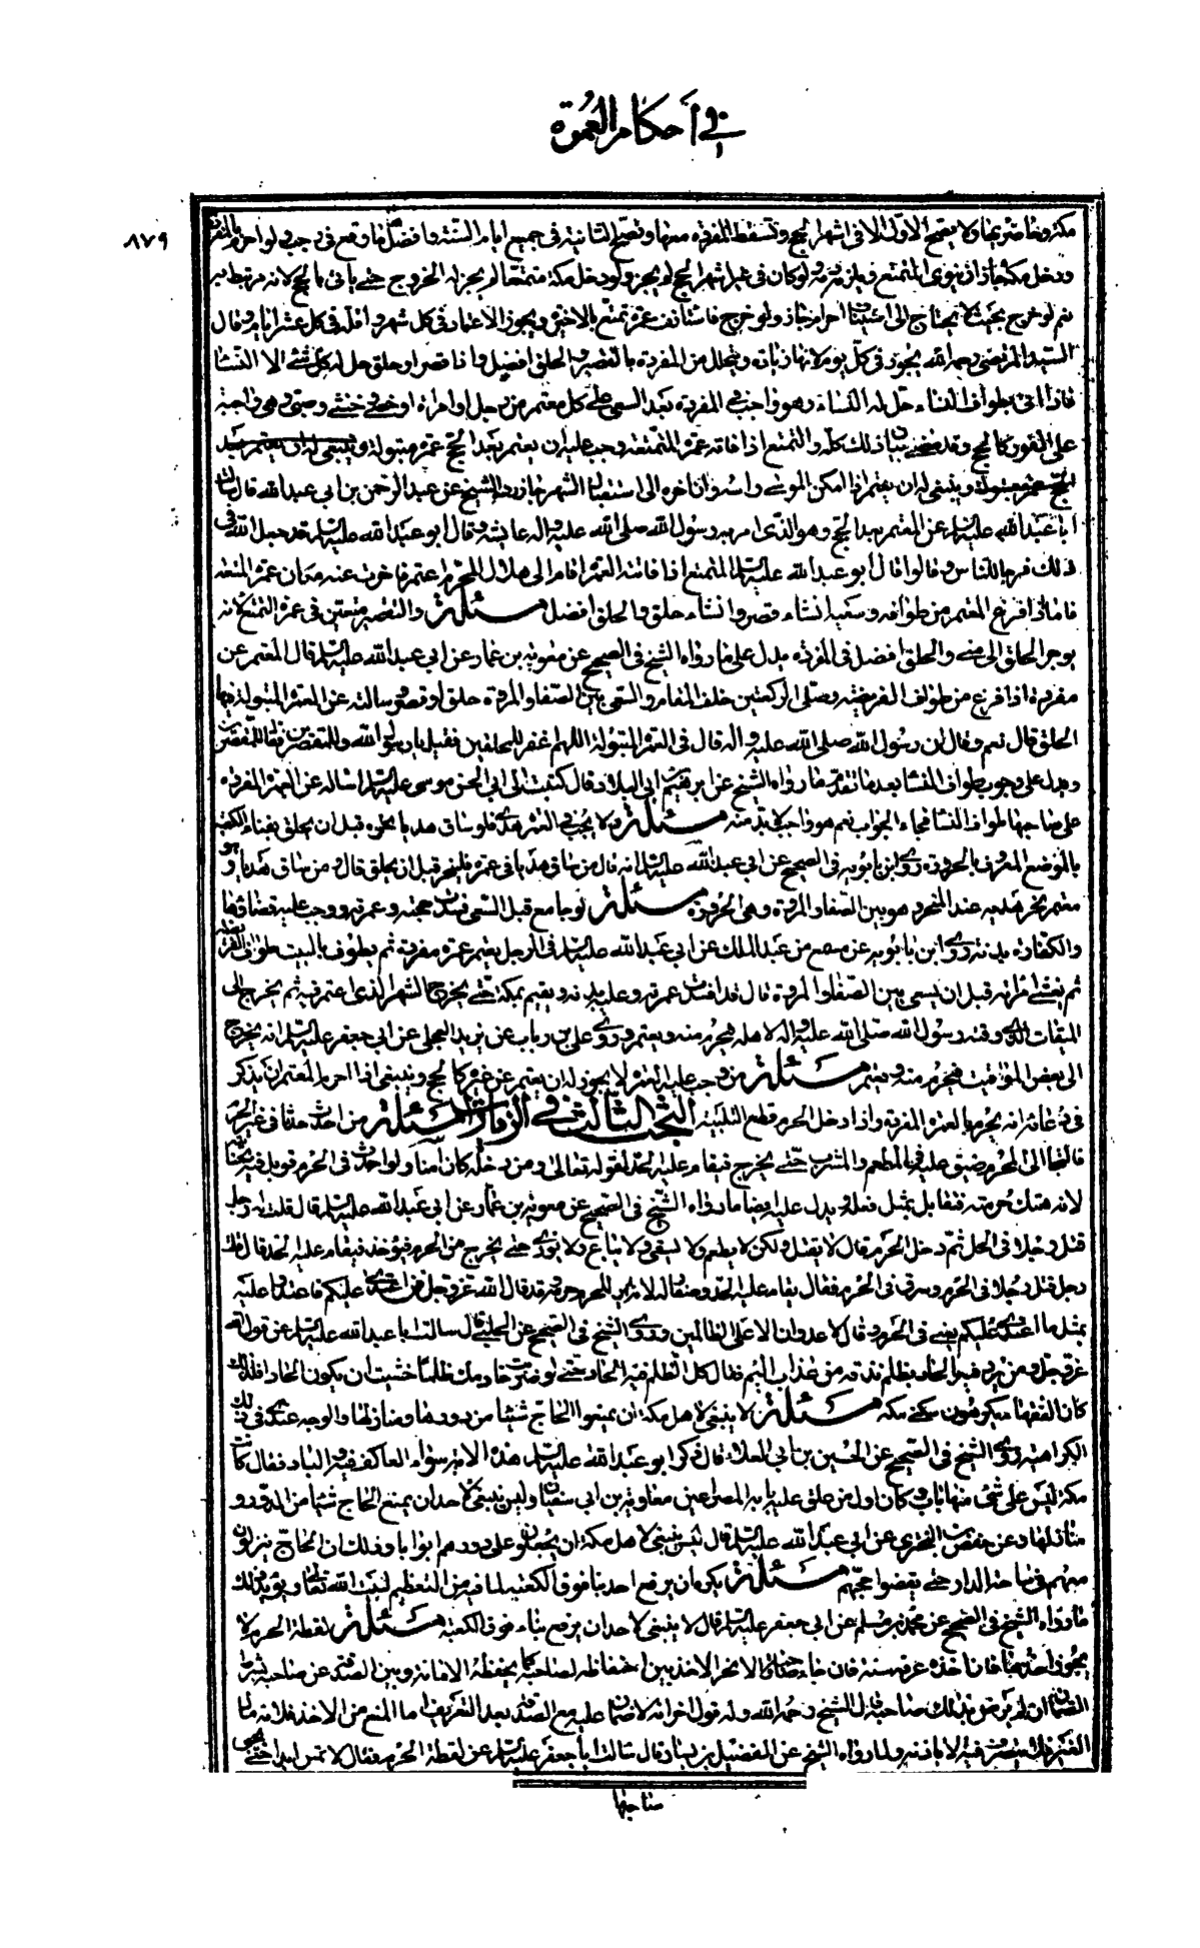 في أحكام العمرة
٨٧٩
مكة وحاضريها ولا يصح الاول الا في اشهر الحج وتسقط المفردة معها وتصح الثانية في جميع ايام السنة وافضل ما وقع في رجب ولو احرم بالمفردة
ودخل مكة جاز ان ينوي التمتع ويلزمه دم ولو كان في غير اشهر الحج لم يجز ولو دخل مكة متمتعا لم يجز له الخروج حتى ياتي بالحج لانه مرتبط به
نعم لو خرج بحيث لا يحتاج الى استيناف احرام جاز ولو خرج فاستانف عمرة تمتع بالاخيرة ويجوز الاعتمار في كل شهر واقله في كل عشرة ايام وقال
السيد المرتضى رحمه الله يجوز في كل يوم لانها زيارة ويتحلل من المفردة بالتقصير والحلق افضل واذا قصر او حلق حل له كل شئ الا النساء
فاذا اتى بطواف النساء حل له النساء وهو واجب في المفردة بعد السعي على كل معتمر من رجل وامراة او خصي وخنثى وصبي وهي واجبة
على الفور كالحج وقد مضى بيان ذلك كله والتمتع اذا فاته عمرة التمتع وجب عليه ان يعتمر بعد الحج عمرة مقبولة
وينبغي له ان يعتمر اذا امكن الموسى من راسه وان اخره الى استقبال الشهر جاز روى الشيخ عن عبد الرحمن بن ابي عبد الله قال سالت
ابا عبد الله عليه السلم عن المعتمر بعد الحج وهو الذي امر به رسول الله صلى الله عليه واله عايشة وقال ابو عبد الله عليه السلم قد جعل الله في
ذلك فرجا للناس وقالوا قال ابو عبد الله عليه السلم المتمتع اذا فاتته العمرة اقام الى هلال المحرم اعتمر فاجزت عنه مكان عمرة المتعة
فاما اذا فرغ المعتمر من طوافه وسعيه ان شاء قصر وان شاء حلق والحلق افضل مسئلة والتقصير متعين في عمرة التمتع لانه
يوجر الحلق الى منى والحلق افضل في المفردة يدل على ما رواه الشيخ في الصحيح عن معوية بن عمار عن ابي عبد الله عليه السلم قال المعتمر عن
مفردة اذا فرغ من طواف الفريضة وصلى الركعتين خلف المقام والسعي بين الصفا والمروة حلق او قصر وسالته عن العمرة المبتولة فيها
الحلق قال نعم وقال ان رسول الله صلى الله عليه واله قال في العمرة المبتولة اللهم اغفر للمحلقين فقيل يا رسول الله وللمقصرين فقال للمقصرين
ويدل على وجوب طواف النساء بعد ما تقدم ما رواه الشيخ عن ابرهيم بن ابي البلاد قال كتبت الى ابي الحسن موسى عليه السلم اساله عن العمرة المفردة
على صاحبها طواف النساء فجاء الجواب نعم هو واجب لا بد منه مسئلة ولا يجب في العمرة هدي فلو ساق هديا نحره قبل ان يحلق بفناء الكعبة
بالموضع المعروف بالحزورة روى ابن بابويه في الصحيح عن ابي عبد الله عليه السلم انه قال من ساق هديا في عمرة فلينحر قبل ان يحلق قال ومن ساق هديا وهو
معتمر نحر هديه عند المنحر وهو بين الصفا والمروة وهي الحزورة مسئلة لو جامع قبل السعي فسدت عمرته ووجب عليه قضاؤها
والكفارة بدنة روى ابن بابويه عن مسمع بن عبد الملك عن ابي عبد الله عليه السلم في الرجل يعتمر عمرة مفردة ثم يطوف بالبيت طواف الفريضة
ثم يغشى امراته قبل ان يسعى بين الصفا والمروة قال قد افسد عمرته وعليه بدنة ويقيم بمكة حتى يخرج الشهر الذي اعتمر فيه ثم يخرج الى
الميقات الذي وقته رسول الله صلى الله عليه واله لاهله فيحرم منه ويعتمر وروى علي بن رياب عن بريد العجلي عن ابي جعفر عليه السلم انه يخرج
الى بعض المواقيت فيحرم منه ويعتمر مسئلة من وجب عليه العمرة لا يجوز له ان يعتمر عن غيره كالحج وينبغي اذا احرم المعتمر ان يذكر
في دعائه انه يحرم بالعمرة المفردة واذا دخل الحرم قطع التلبية البحث الثالث في الزيارات مسئلة من احدث حدثا في غير الحرم
فالتجا الى الحرم ضيق عليه في المطعم والمشرب حتى يخرج فيقام عليه الحد لقوله تعالى ومن دخله كان امنا ولو احدث في الحرم قوبل فيه بجنايته
لانه هتك حرمته فيقابل بمثل فعله ويدل عليه ايضا ما رواه الشيخ في الصحيح عن معوية بن عمار عن ابي عبد الله عليه السلم قال قلت له رجل
قتل رجلا في الحل ثم دخل الحرم قال لا يقتل ولكن لا يطعم ولا يسقى ولا يباع ولا يؤذى حتى يخرج من الحرم فيؤخذ فيقام عليه الحد قال قلت
رجل قتل رجلا في الحرم وسرق في الحرم فقال يقام عليه الحد وصغار له لانه لم ير للحرم حرمة وقد قال الله عز وجل فمن اعتدى عليكم فاعتدوا عليه
بمثل ما اعتدى عليكم يعني في الحرم وقال لا عدوان الا على الظالمين وروى الشيخ في الصحيح عن الحلبي قال سالت ابا عبد الله عليه السلم عن قول الله
عز وجل ومن يرد فيه بالحاد بظلم نذقه من عذاب اليم فقال كل الظلم فيه الحاد حتى لو ضربت خادمك ظلما خشيت ان يكون الحادا فلذلك
كان الفقهاء يكرهون سكنى مكة مسئلة لا ينبغي لاهل مكة ان يمنعوا الحاج شيئا من دورها ومنازلها والوجه عندي في ذلك
الكراهية روى الشيخ في الصحيح عن الحسين بن ابي العلاء قال ذكر ابو عبد الله عليه السلم هذه الاية سواء العاكف فيه والباد فقال كانت
مكة ليس على شئ منها باب وكان اول من علق على بابه المصراعين معاوية بن ابي سفيان وليس ينبغي لاحد ان يمنع الحاج شيئا من الدور و
منازلها وعن حفص بن البختري عن ابي عبد الله عليه السلم قال ليس ينبغي لاهل مكة ان يجعلوا على دورهم ابوابا وذلك ان الحاج ينزلون
معهم في ساحة الدار حتى يقضوا حجهم مسئلة يكره ان يرفع احد بناء فوق الكعبة لما فيه من التعظيم لبيت الله تعالى ويؤيد ذلك
ما رواه الشيخ في الصحيح عن محمد بن مسلم عن ابي جعفر عليه السلم قال لا ينبغي لاحد ان يرفع بناء فوق الكعبة مسئلة لقطة الحرم لا
يجوز اخذها فان اخذه عرفه سنة فان جاء صاحبها والا تخير الاخذ بين احفاظه لصاحبه كما يحفظه الامانة وبين الصدقة عن صاحبه بشرط
الضمان ان لم يرض بذلك صاحبه قال الشيخ رحمه الله وله قول اخر انه لا ضمان عليه مع الصدقة بعد التعريف اما المنع من الاخذ فلانه مال
الغير فلا يتصرف فيه الا باذنه ولما رواه الشيخ عن الفضيل بن يسار قال سالت ابا جعفر عليه السلم عن لقطة الحرم فقال لا تمس ابدا حتى يجئ
صاحبها